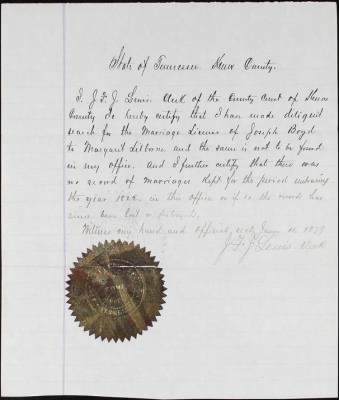 State of Tennessee Knox County.
I, J. F. J. Lewis. Clerk of the County Court of Knox
County Do hereby certify that I have made diligent
seach for the Marriage License of Joseph Boyd
to Margaret and the same is not to be found
in my office. And I further certify that there was
no record of marriages Kept for the period embracing
the year in this office or if so the records have
since been lost or
Witness my hand and official seal 1879
J. F. J. Lewis Clerk